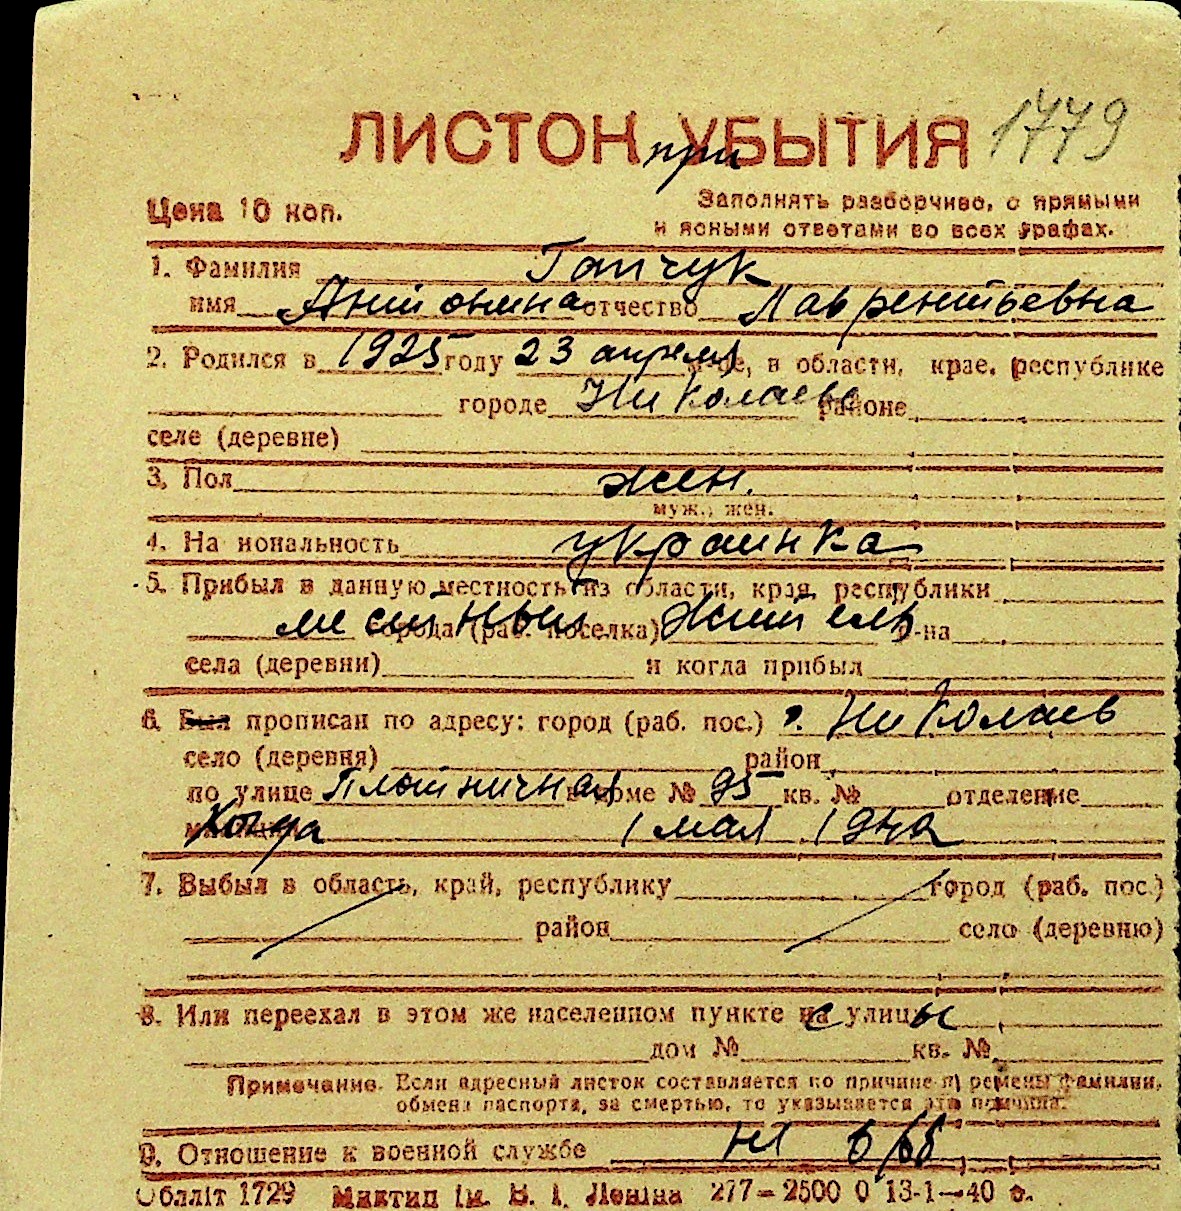 ЛИСТОК УБЫТИЯ 1779
при
Цена 10 коп.
Заполнять разборчиво, с прямыми
и ясными ответами во всех графах.
1. Фамилия Гапчук
имя Антонина отчество Лаврентьевна
2. Родился в 1925 году 23 апреля м-це, в области, крае, республике
городе Николаеве районе
селе (деревне)
3. Пол жен.
муж., жен.
4. На иональность украинка
5. Прибыл в данную местность из области, края, республики
местный города (раб. поселка) житель р-на
села (деревни) и когда прибыл
6. Был прописан по адресу: город (раб. пос.) г. Николаев
село (деревня) район
по улице Плотничная в доме № 95 кв. № отделение
Когда 1 мая 1942
7. Выбыл в область, край, республику город (раб. пос.)
район село (деревню)
8. Или переехал в этом же населенном пункте с улицы
дом № кв. №
Примечание. Если адресный листок составляется по причине перемены фамилии,
обмена паспорта, за смертью, то указывается эта причина.
9. Отношение к военной службе н/ в/об
Обліт 1729 Миктип ім. В. І. Леніна 277—2500 0 13-1—40 г.